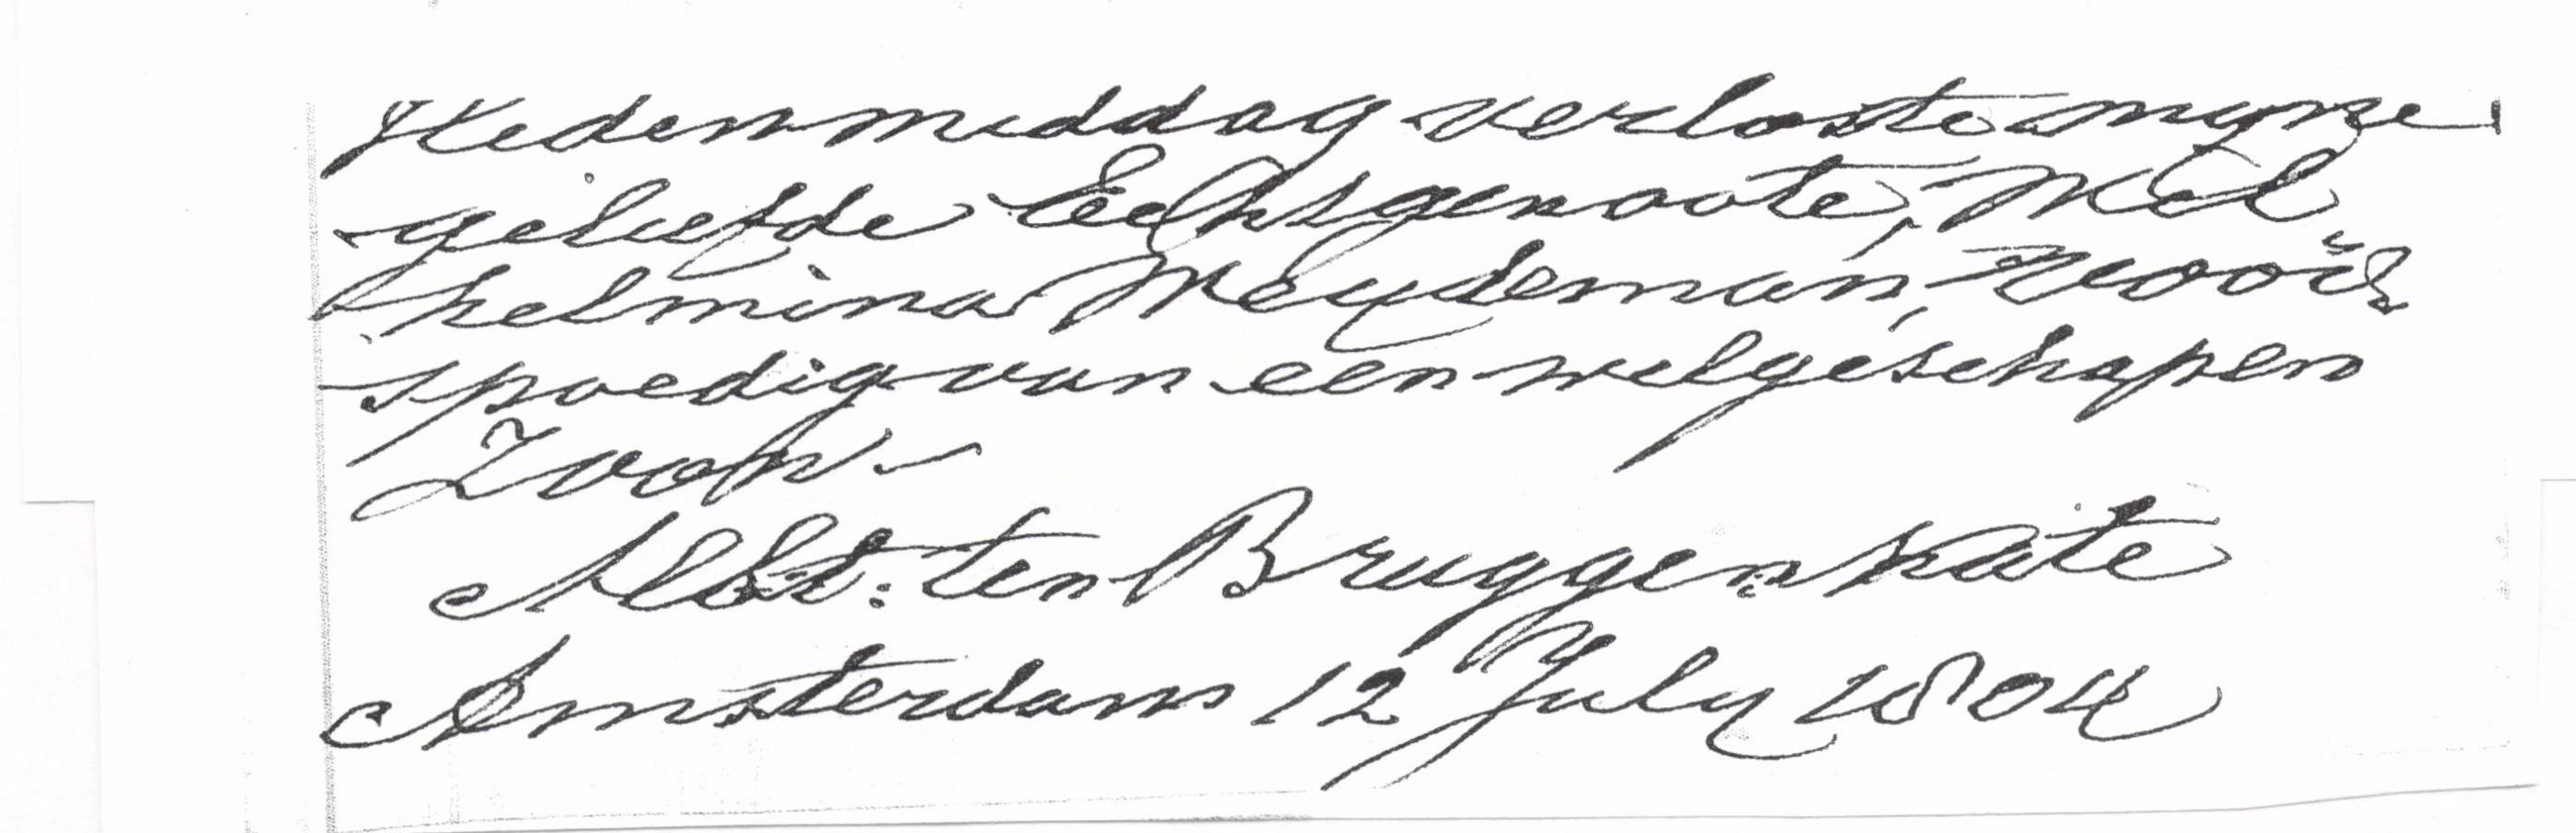 Heden middag verloste myne
geliefde Echtsgenoote, Wil
helmina Weydeman, Voor
spoedig van een welgeschapen
Zoon -
Albt: ten Bruggenkate
Amsterdam 12 July 1804